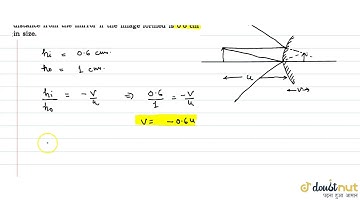 distance from the mirror if the image formed is 0.6 cm
in size.
hi = 0.6 cm.
ho = 1 cm.
hi/ho = -v/u ⇒ 0.6/1 = -v/u
v = -0.6u
u
v
doubtnut
पढ़ना हुआ आसान